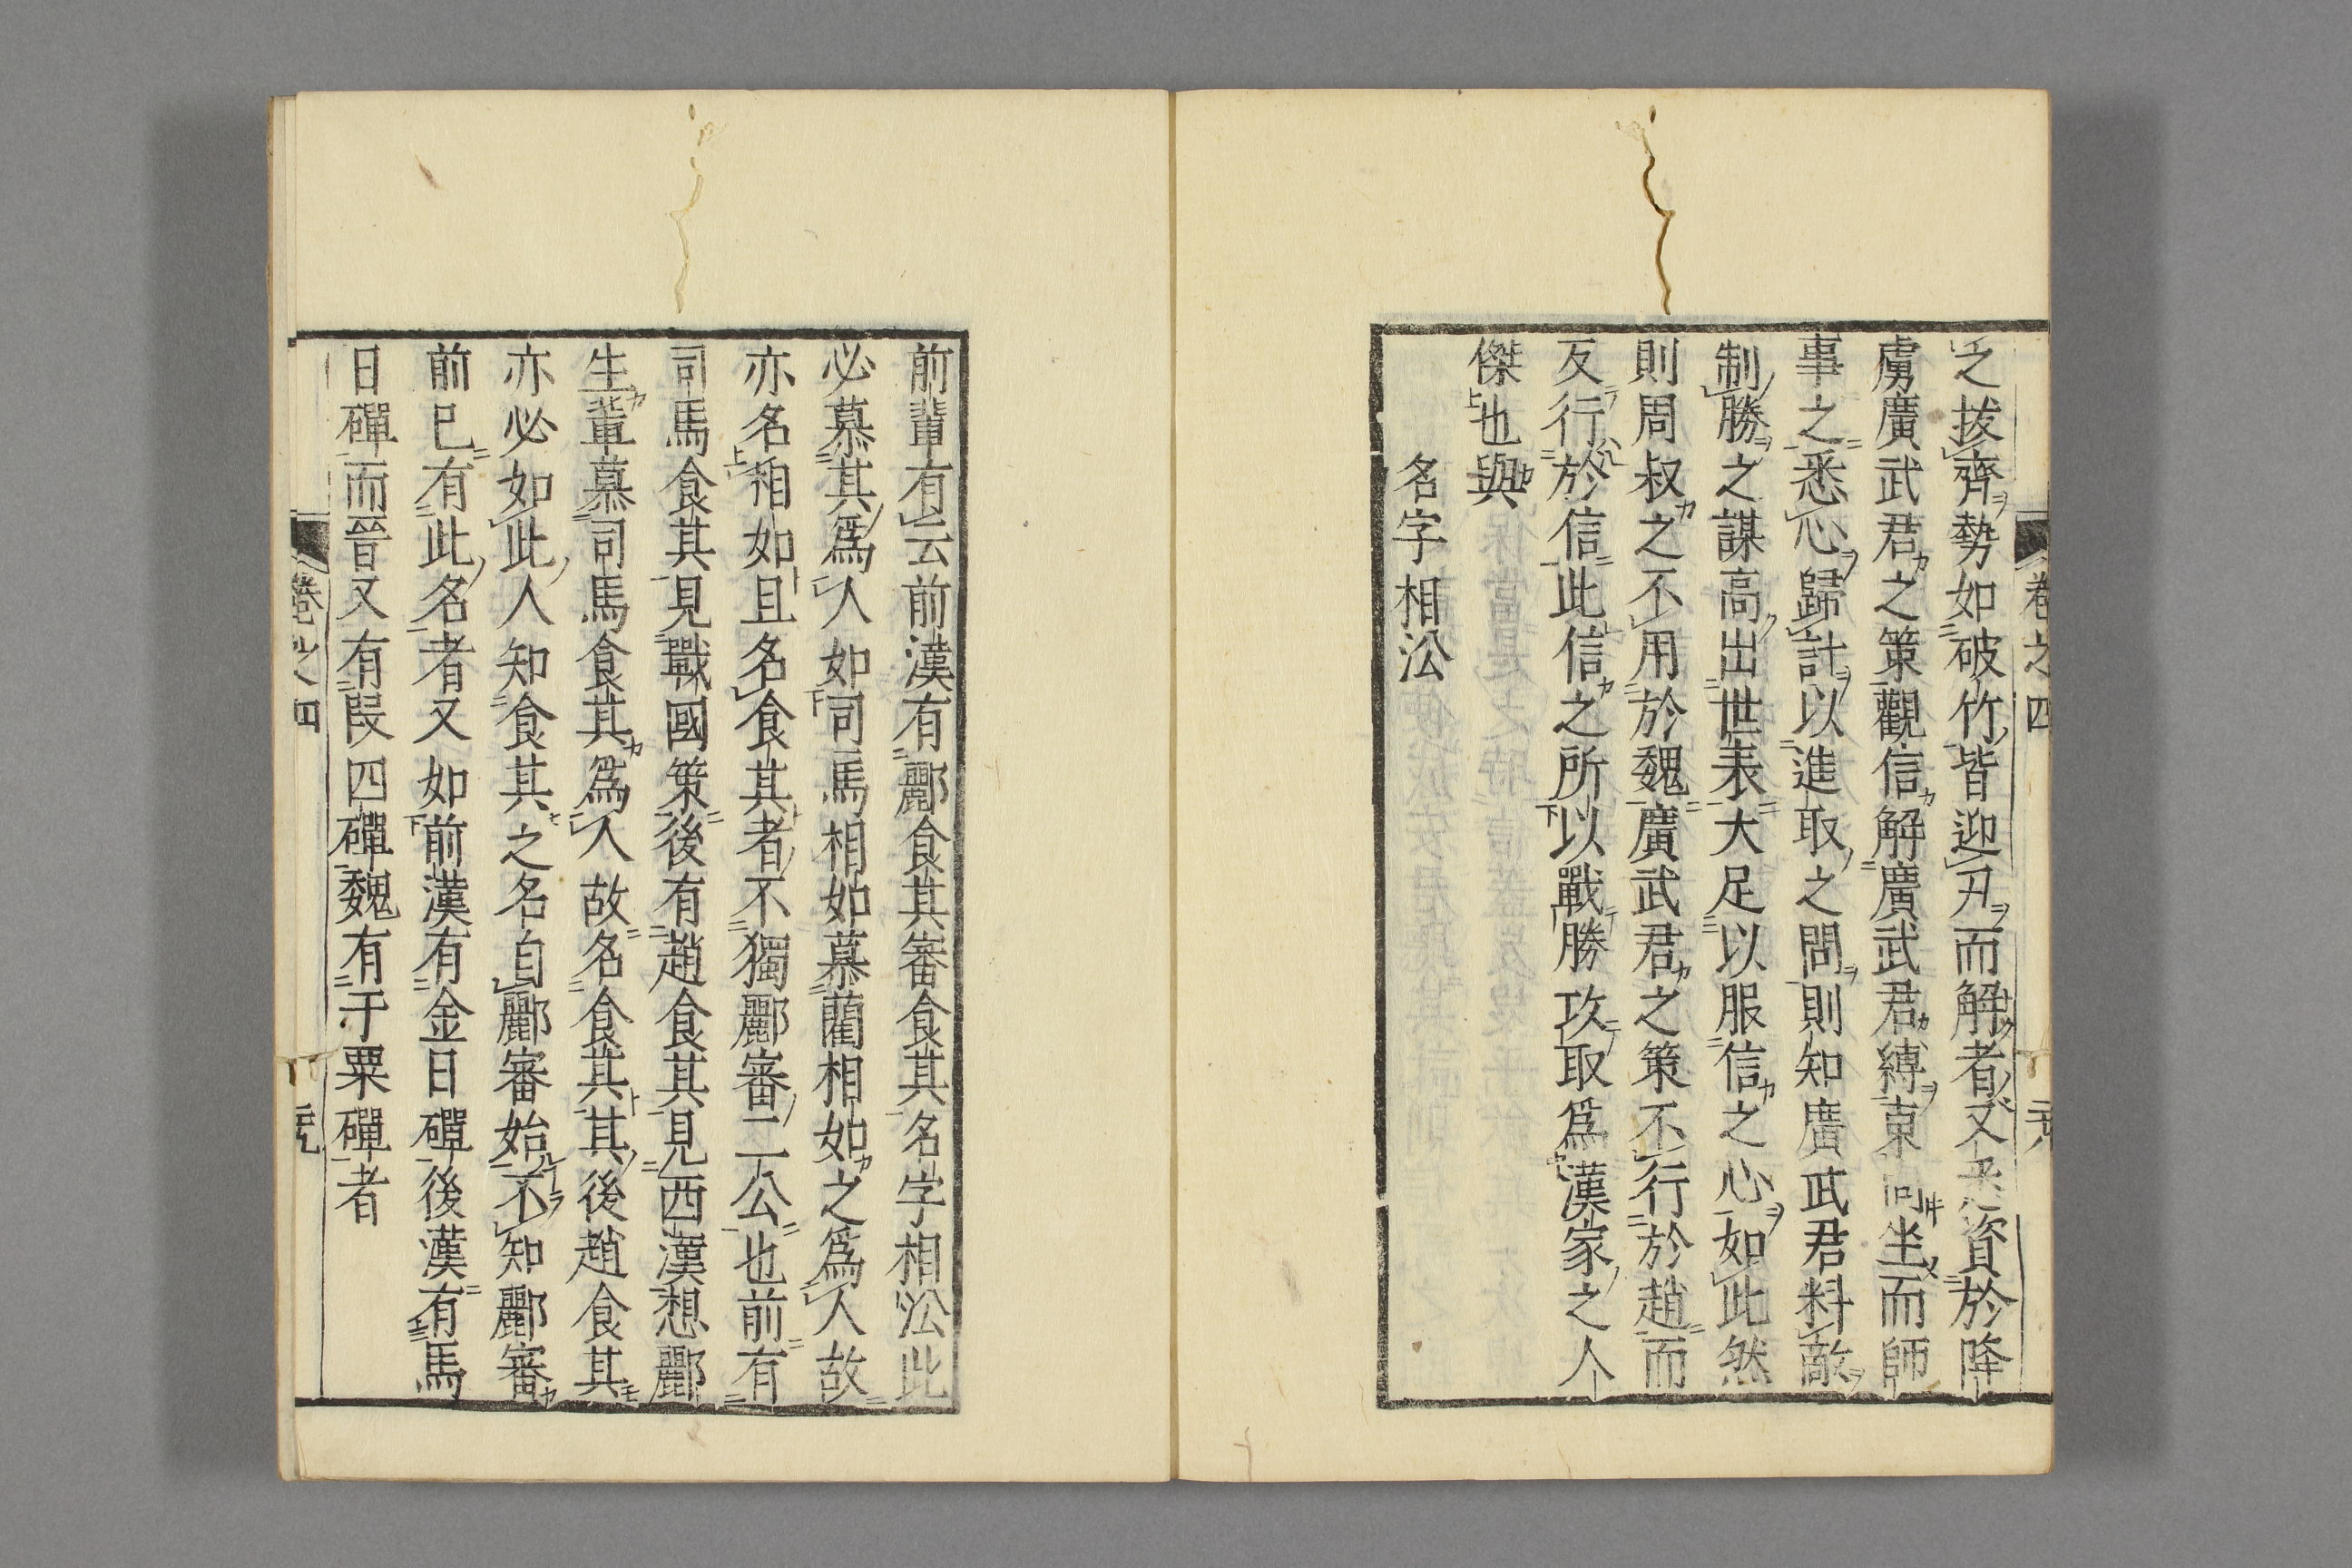 之拔齊勢如破竹皆迎刃而解者又悉資於降
虜廣武君之策觀信解廣武君縛東向坐而師
事之悉心歸計以進取之問則知廣武君料敵
制勝之謀高出世表大足以服信之心如此然
則周叔之不用於魏廣武君之策不行於趙而
反行於信此信之所以戰勝攻取爲漢家之人
傑也與
名字相㳂
卷之四
前輩有云前漢有酈食其審食其名字相㳂此
必慕其爲人如司馬相如慕藺相如之爲人故
亦名相如且名食其者不獨酈審二公也前有
司馬食其見戰國策後有趙食其見西漢想酈
生輩慕司馬食其爲人故名食其其後趙食其
亦必如此人知食其之名自酈審始不知酈審
前已有此名者又如前漢有金日磾後漢有馬
日磾而晉又有段匹磾魏有于粟磾者
卷之四